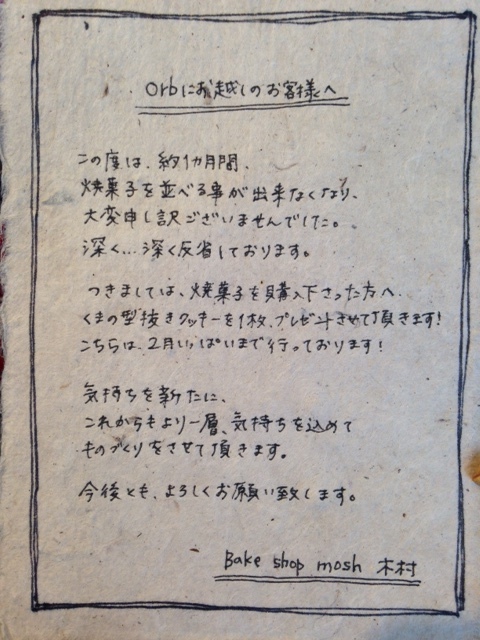 orbにお越しのお客様へ
この度は、約1カ月間、
焼菓子を並べる事が出来なくなり、
大変申し訳ございませんでした。
深く…深く反省しております。
つきましては、焼菓子を購入下さった方へ
くまの型抜きクッキーを1枚、プレゼントさせて頂きます!
こちらは、2月いっぱいまで行っております!
気持ちを新たに、
これからもより一層、気持ちを込めて
ものづくりをさせて頂きます。
今後とも、よろしくお願い致します。
Bake shop mosh 木村